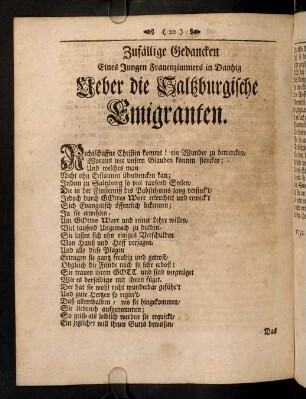 ( 20 )
Zufällige Gedancken
Eines Jungen Frauenzimmers in Dantzig
Ueber die Saltzburgische
Emigranten.
Rechtschaffne Christen kommt! ein Wunder zu bemercken,
Woraus wir unsern Glauben können stärcken;
Und welches man
Nicht ohn Erstaunen überdencken kan;
Indem zu Saltzburg so viel tausend Seelen,
Die in der Finsterniß des Pabstthums lang versenckt,
Jedoch durch GOttes Wort erleuchtet und erweckt
Sich Evangelisch öffentlich bekennen;
Ja sie erwehlen
Um GOttes Wort und reiner Lehre willen,
Viel tausend Ungemach zu dulden.
Sie lassen sich ohn eintges Verschulden
Von Hauß und Hoff verjagen,
Und alle diese Plagen
Ertragen sie gantz freudig und getrost,
Obgleich die Feinde noch so sehr erbost:
Sie trauen ihrem GOTT und sind vergnüget
Wie es derselbige mit ihnen füget.
Der hat sie wohl recht wunderbar geführt
Und gute Hertzen so regiert,
Daß allenthalben, wo sie hingekommen,
Sie liebreich aufgenommen;
So geist- als leiblich werden sie erquickt,
Ein jeglicher will ihnen Guts beweisen,
Das